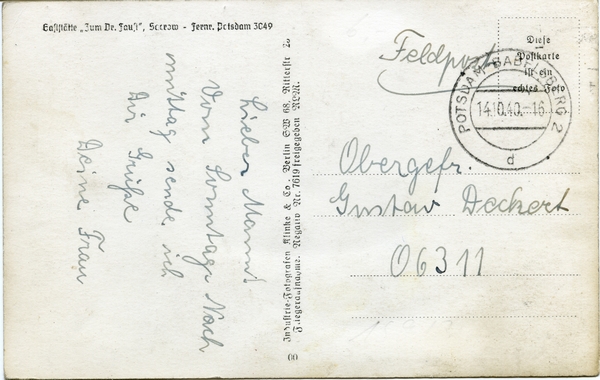 Gaststätte „Zum Dr. Faust“, Sacrow - Fernr. Potsdam 3049
Lieber Mann!
Vom Sonntag Nach
mittag sende ich
Dir Grüße
Deine Frau
Industrie-Fotografen Klinke & Co., Berlin SW 68, Ritterstr 2
Fliegeraufnahme. Negativ Nr. 7619 freigegeben RLM.
00
Feldpost
Diese
Postkarte
ist ein
echtes Foto
POTSDAM-BABELSBERG 2
14.10.40.-16
d
Obergefr.
Gustav Deckert
06311